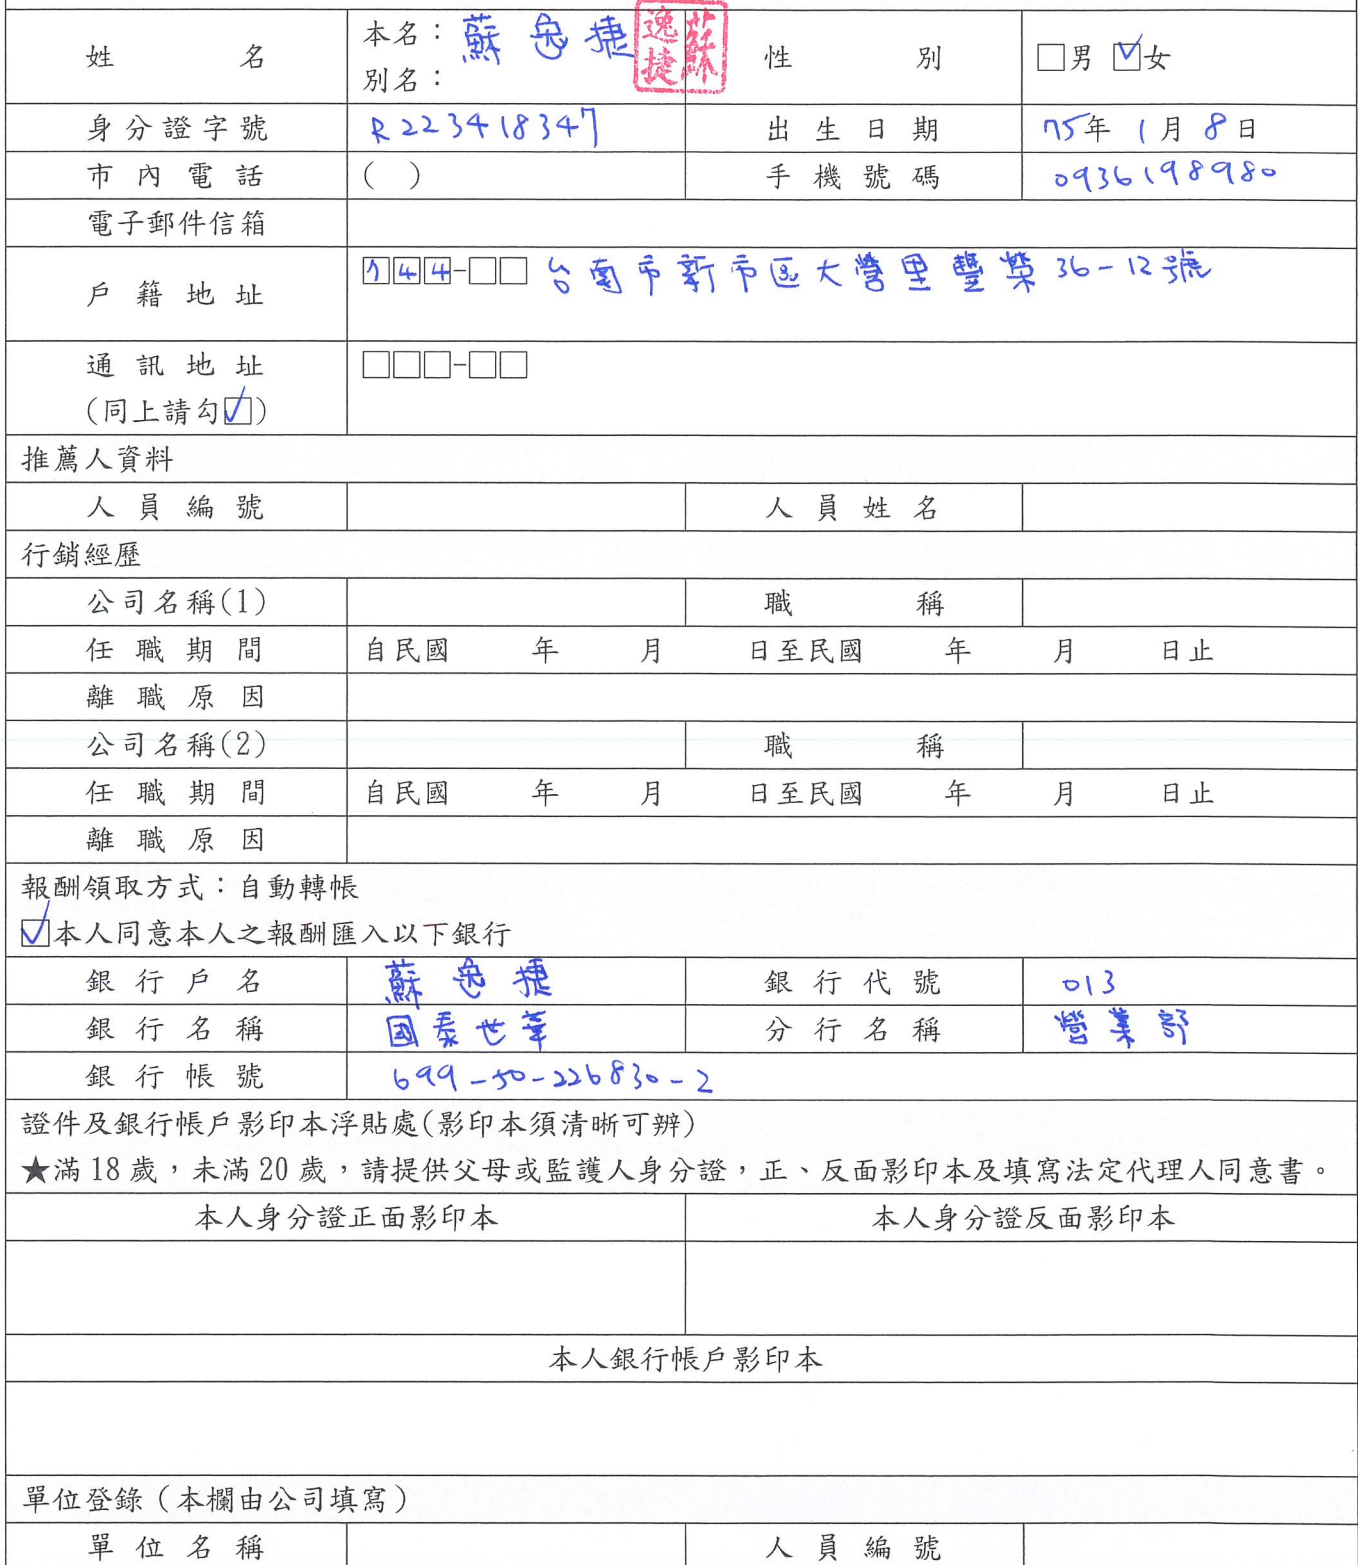 姓名 本名：蘇逸捷 逸捷蘇 性別 □男 ☑女
別名：
身分證字號 R223418347 出生日期 75年1月8日
市內電話 ( ) 手機號碼 0936198980
電子郵件信箱
戶籍地址 744-□□ 台南市新市區大營里豐榮36-12號
通訊地址 □□□-□□
(同上請勾☑)
推薦人資料
人員編號 人員姓名
行銷經歷
公司名稱(1) 職稱
任職期間 自民國 年 月 日至民國 年 月 日止
離職原因
公司名稱(2) 職稱
任職期間 自民國 年 月 日至民國 年 月 日止
離職原因
報酬領取方式：自動轉帳
☑本人同意本人之報酬匯入以下銀行
銀行戶名 蘇逸捷 銀行代號 013
銀行名稱 國泰世華 分行名稱 營業部
銀行帳號 699-50-226830-2
證件及銀行帳戶影印本浮貼處(影印本須清晰可辨)
★滿18歲，未滿20歲，請提供父母或監護人身分證，正、反面影印本及填寫法定代理人同意書。
本人身分證正面影印本 本人身分證反面影印本
本人銀行帳戶影印本
單位登錄（本欄由公司填寫）
單位名稱 人員編號